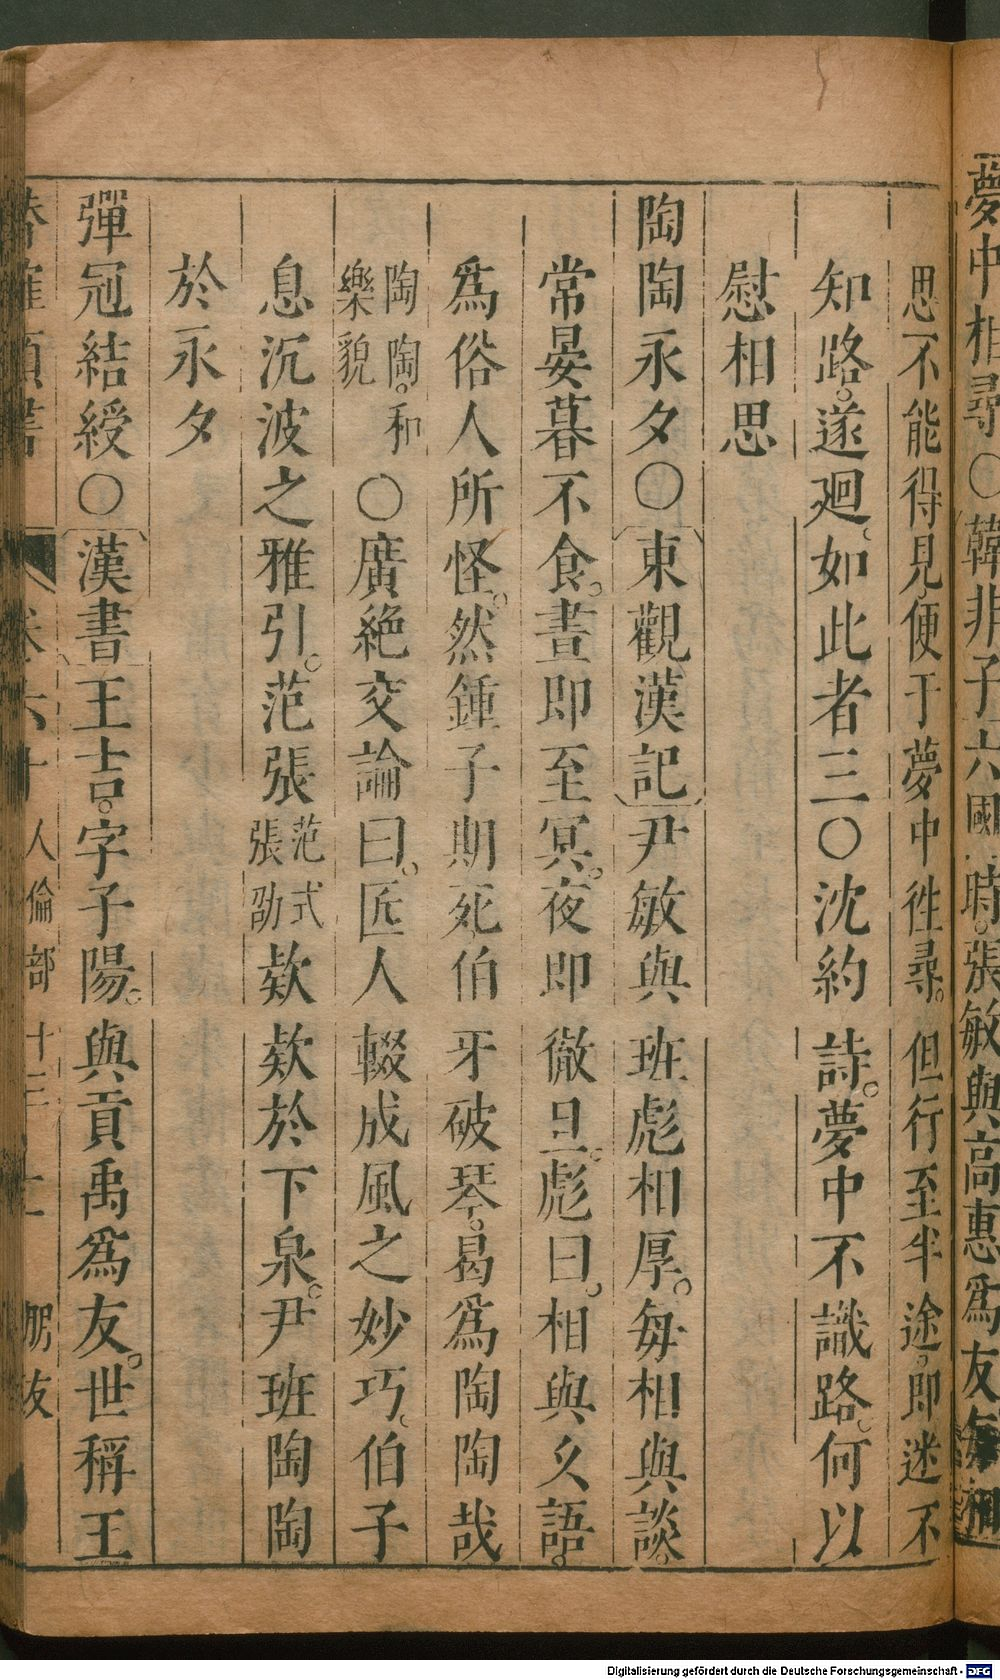 夢中相尋○韓非子六國時。張敏與高惠爲友每相
思不能得見。便于夢中徃尋。但行至半途。即迷不
知路。遂廻。如此者三○沈約詩。夢中不識路。何以
慰相思
陶陶永夕○東觀漢記尹敏與班彪相厚。每相與談。
常晏暮不食。晝即至冥。夜即徹旦。彪曰。相與久語。
爲俗人所怪。然鍾子期死伯牙破琴。曷爲陶陶哉
陶陶。和樂貌○廣絶交論曰。匠人輟成風之妙巧。伯子
息沉波之雅引。范張范式張劭欵欵於下泉。尹班陶陶
於永夕
彈冠結綬○漢書王吉。字子陽。與貢禹爲友。世稱王
卷六十 人倫部十三 朋友
Digitalisierung gefördert durch die Deutsche Forschungsgemeinschaft - DFG